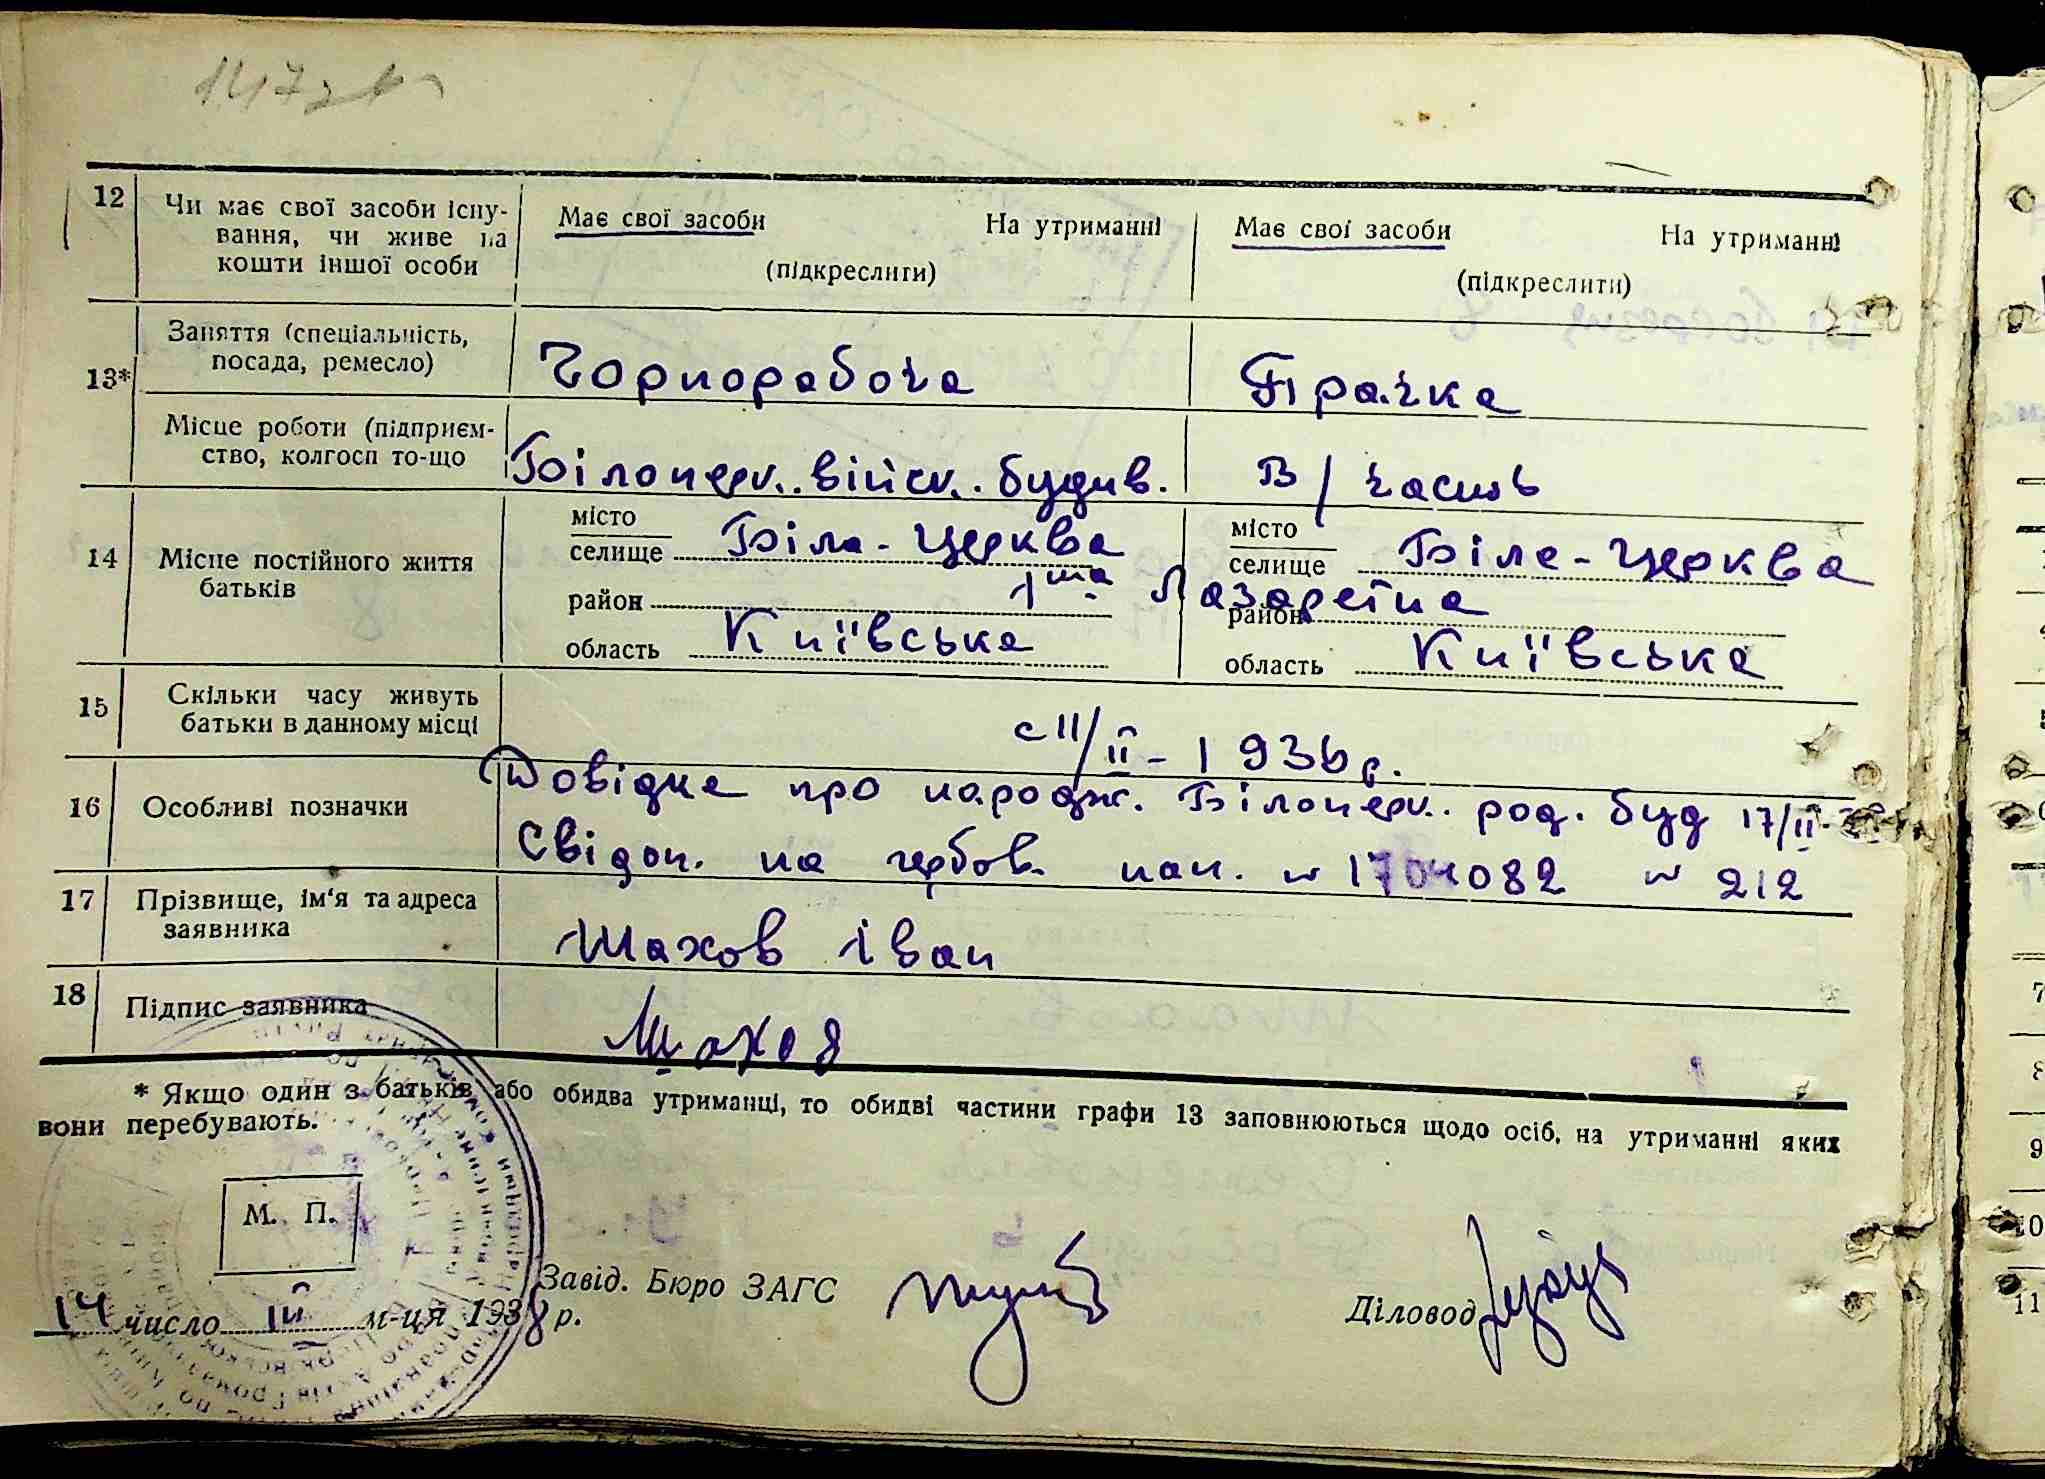 147 зв
12 Чи має свої засоби існу-
вання, чи живе на
кошти іншої особи
Має свої засоби На утриманні
(підкреслити)
Має свої засоби На утриманні
(підкреслити)
13* Заняття (спеціальність,
посада, ремесло)
Чорнорабоча
Прачка
Місце роботи (підприєм-
ство, колгосп то-що
Білоцерк. військ. будив.
В/часть
14 Місце постійного життя
батьків
місто
селище Біла-Церква
район
область Київська
місто
селище Біла-Церква
1ша Лазаретна
район
область Київська
15 Скільки часу живуть
батьки в данному місці
с 11/II - 1936 р.
16 Особливі позначки
Довідка про народж. Білоцерк. род. буд 17/II-
Свідоц. на гербов. пап. № 1704082 № 212
17 Прізвище, ім'я та адреса
заявника
Шахов Іван
18 Підпис заявника
Шахов
* Якщо один з батьків або обидва утриманці, то обидві частини графи 13 заповнюються щодо осіб, на утриманні яких
вони перебувають.
М. П.
Завід. Бюро ЗАГС
Діловод
14 число Ій м-ця 1938 р.